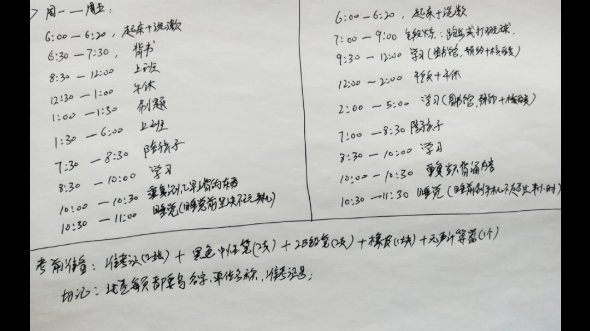 周一——周五:
6:00—6:20, 起床+洗漱
6:30—7:30, 背书
8:30—12:00 上班
12:30—1:00 午休
1:00—1:30 刷题
1:30—6:00 上班
7:30—8:30 陪孩子
8:30—10:00 学习
10:00—10:30 重复记忆早上背的东西
10:30—11:00 睡觉(睡觉前坚决不玩手机)
6:00—6:20, 起床+洗漱
7:00—9:00 锻炼:跑步或打羽毛球
9:30—12:00 学习(图书馆,
12:00—2:00 午饭+午休
2:00—5:00 学习(图书馆,
7:00—8:30 陪孩子
8:30—10:00 学习
10:00—10:30 重复背诵内容
10:30—11:30 睡觉(睡前刷手机不超过半小时)
考前准备:准考证(2张)+黑色中性笔(2支)+2B铅笔(2支)+橡皮(1块)+无声计算器(1个)
切记:每页都要写名字、单位名称,准考证号;